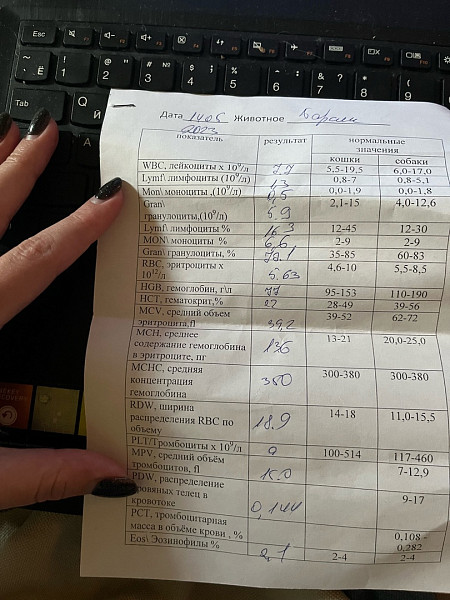 Esc F1 F2 F3 F4 F5 F6 F7 F8
~ Ё ! 1 @ 2 # 3 $ 4 % 5 ^ 6 & 7 * 8 ( 9
Tab Q Й
A
Дата 14.05 Животное
2023
показатель результат нормальные значения
кошки собаки
WBC, лейкоциты х 10⁹/л 7,7 5.5-19,5 6,0-17,0
Lymf\ лимфоциты (10⁹/л) 1,3 0,8-7 0,8-5,1
Mon\ моноциты ,(10⁹/л) 0,5 0,0-1,9 0,0-1,8
Gran\ гранулоциты,(10⁹/л) 5.9 2,1-15 4,0-12,6
Lymf\ лимфоциты % 16,3 12-45 12-30
MON\ моноциты % 6,6 2-9 2-9
Gran\ гранулоциты, % 35-85 60-83
RBC, эритроциты х 10¹²/л 5.63 4,6-10 5,5-8,5
HGB, гемоглобин, г\л 77 95-153 110-190
HCT, гематокрит,% 22 28-49 39-56
MCV, средний объем эритроцита,fl 39,2 39-52 62-72
MCH, среднее содержание гемоглобина в эритроците, пг 13,6 13-21 20,0-25,0
MCHC, средняя концентрация гемоглобина 350 300-380 300-380
RDW, ширина распределения RBC по объему 18.9 14-18 11,0-15,5
PLT/Тромбоциты х 10⁹/л 100-514 117-460
MPV, средний объём тромбоцитов, fl 7-12,9
PDW, распределение кровяных телец в кровотоке 0,144 9-17
PCT, тромбоцитарная масса в объёме крови , % 0,108 - 0,282
Eos\ Эозинофилы % 2,1 2-4 2-4